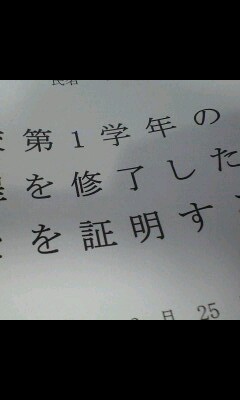 氏名
第1学年の
を修了した
を証明す
月 25